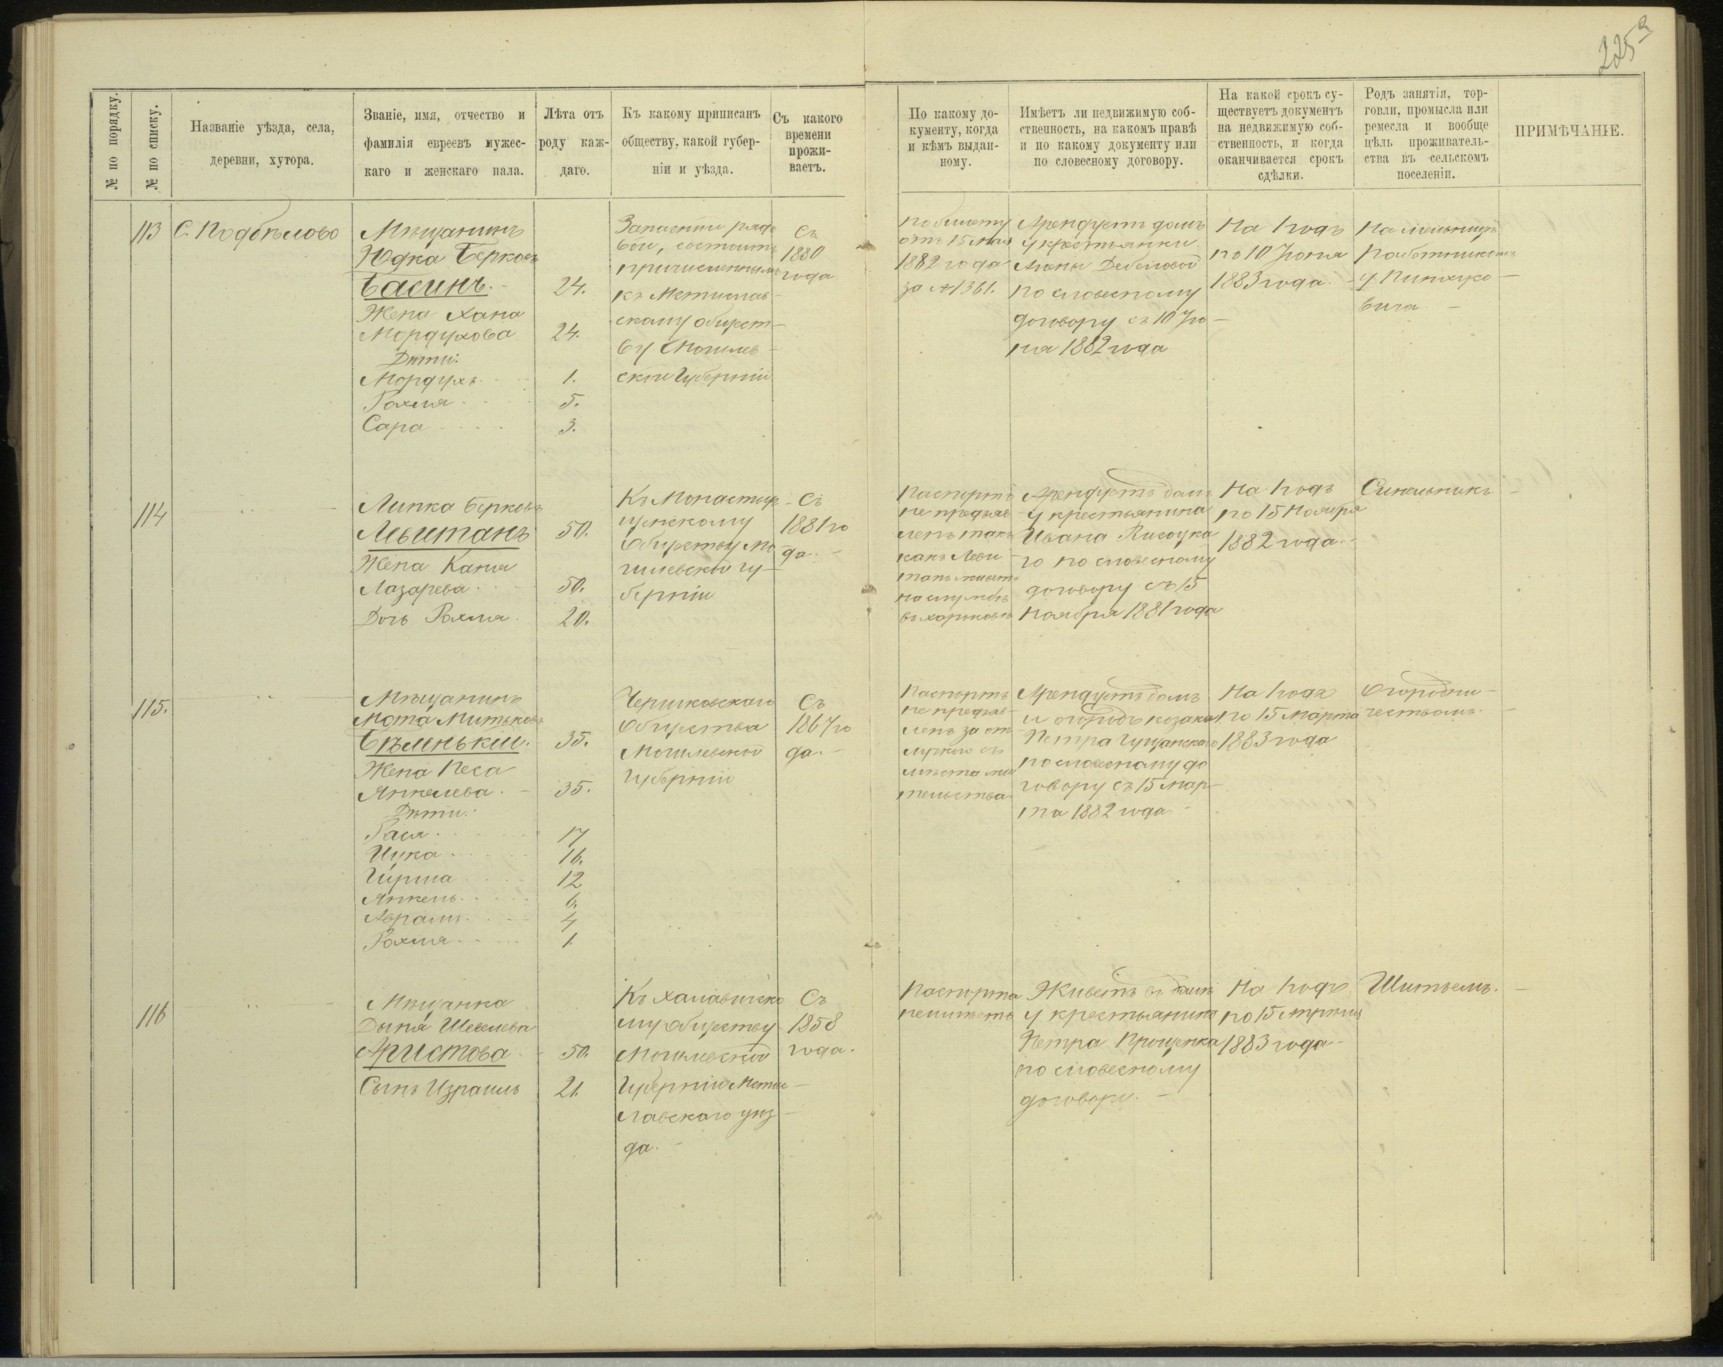 225
№ по порядку.
№ по списку.
Названіе уѣзда, села,
деревни, хутора.
Званіе, имя, отчество и
фамилія евреевъ мужес-
каго и женскаго пала.
Лѣта отъ
роду каж-
даго.
Къ какому приписанъ
обществу, какой губер-
ніи и уѣзда.
Съ какого
времени
прожи-
ваетъ.
По какому до-
кументу, когда
и кѣмъ выдан-
ному.
Имѣетъ ли недвижимую соб-
ственность, на какомъ правѣ
и по какому документу или
по словесному договору.
На какой срокъ су-
ществуетъ документъ
на недвижимую соб-
ственность, и когда
оканчивается срокъ
сдѣлки.
Родъ занятія, тор-
говли, промысла или
ремесла и вообще
цѣль проживатель-
ства въ сельскомъ
поселеніи.
ПРИМѢЧАНІЕ.
113
С. Подбѣлово
Мѣщанинъ
Юдка Берковъ
Басинъ.
24.
Жена Хана
Мордухова
24.
Дѣти:
Мордухъ
1.
Рохля
5.
Сара
3.
Запасный рядо
вой, состоитъ
причисленнымъ
къ Мстислав-
скому общест-
ву Могилев-
ской Губерніи
Съ
1880
года
По билету
отъ 15 Мая
1882 года
за № 1361.
Арендуетъ домъ
у крестьянки
по словесному
договору съ 10 Iю-
ня 1882 года
На 1 годъ
по 10 Iюня
1883 года
На мельницѣ
работникомъ
114
Липка Берковъ
Лѣвитанъ
50.
Жена Ханя
Лазарева
50.
Дочь Рохля.
20.
Къ Монастыр-
щинскому
Обществу Мо-
гилевской гу-
берніи
Съ
1881 го
да.
Паспортъ
не предъяв-
ленъ такъ
какъ Леви-
танъ
Арендуетъ домъ
у крестьянина
Ивана
го по словесному
договору съ 15
Ноября 1881 года
На 1 годъ
по 15 Ноября
1882 года.
Синельникъ
115.
Мѣщанинъ
Мота Митьковъ
Бѣленькій.
35.
Жена Песа
Янкелева.
35.
Дѣти:
Рася.
17
Цука.
16.
Гирша
12
Янкель.
6.
Абрамъ.
4
Рохля.
1
Чериковскаго
Общества
Могилевской
Губерніи
Съ
1867 го
да.
Паспортъ
не предъяв-
ленъ за от-
лучкою съ
мѣста жи-
тельства
Арендуетъ домъ
и огородъ козака
Петра
по словесному до
говору съ 15 Мар-
та 1882 года
На 1 годъ
по 15 Марта
1883 года
Огородни-
чествомъ.
116
Мѣщанка
Дыня Шевелева
Аристова
50.
Сынъ Израиль
21.
Къ Хославичско
му Обществу
Могилевской
Губерніи Мсти-
славскаго уѣз-
да.
Съ
1858
года.
Паспорта
не имѣетъ
Живетъ въ домѣ
у крестьянина
Петра Прощенка
по словесному
договору.
На 1 годъ
1883 года
Шитьемъ.